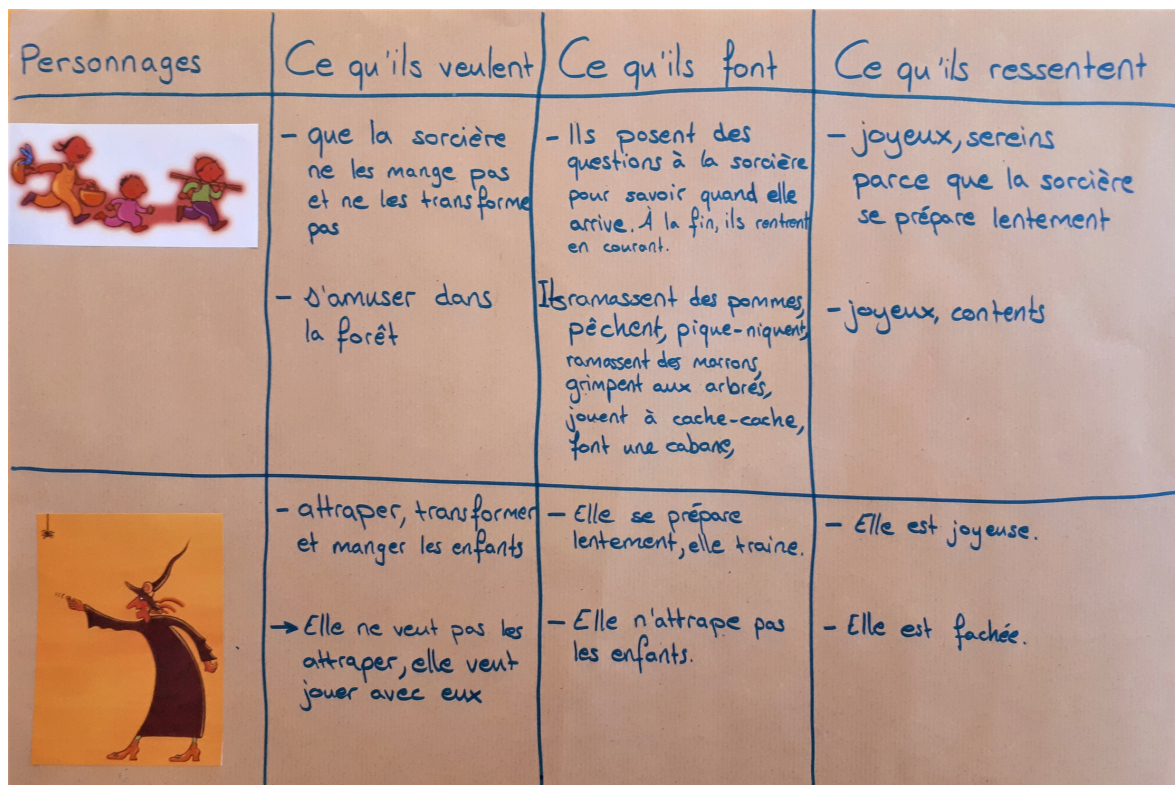 Personnages
Ce qu'ils veulent
Ce qu'ils font
Ce qu'ils ressentent
- que la sorcière
ne les mange pas
et ne les transforme
pas
- s'amuser dans
la forêt
- Ils posent des
questions à la sorcière
pour savoir quand elle
arrive. À la fin, ils rentrent
en courant.
Ils ramassent des pommes,
pêchent, pique-niquent,
ramassent des marrons,
grimpent aux arbres,
jouent à cache-cache,
font une cabane,
- joyeux, sereins
parce que la sorcière
se prépare lentement
- joyeux, contents
- attraper, transformer
et manger les enfants
→ Elle ne veut pas les
attraper, elle veut
jouer avec eux
- Elle se prépare
lentement, elle traine.
- Elle n'attrape pas
les enfants.
- Elle est joyeuse.
- Elle est fachée.